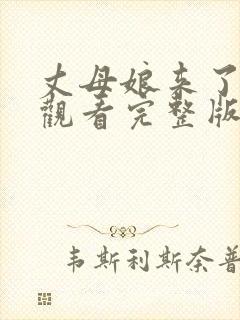 丈母娘来了
觀看完整版
韦斯利斯奈普